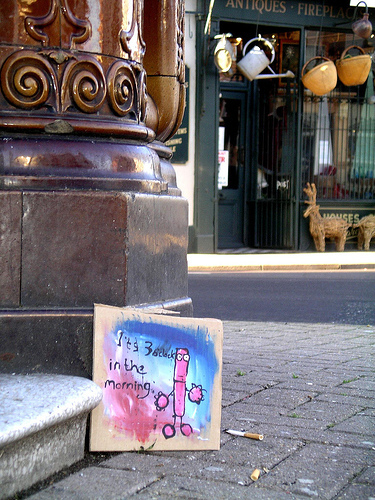 ANTIQUES • FIREPLACE
HOUSES
It's 3 o'clock
in the
morning.